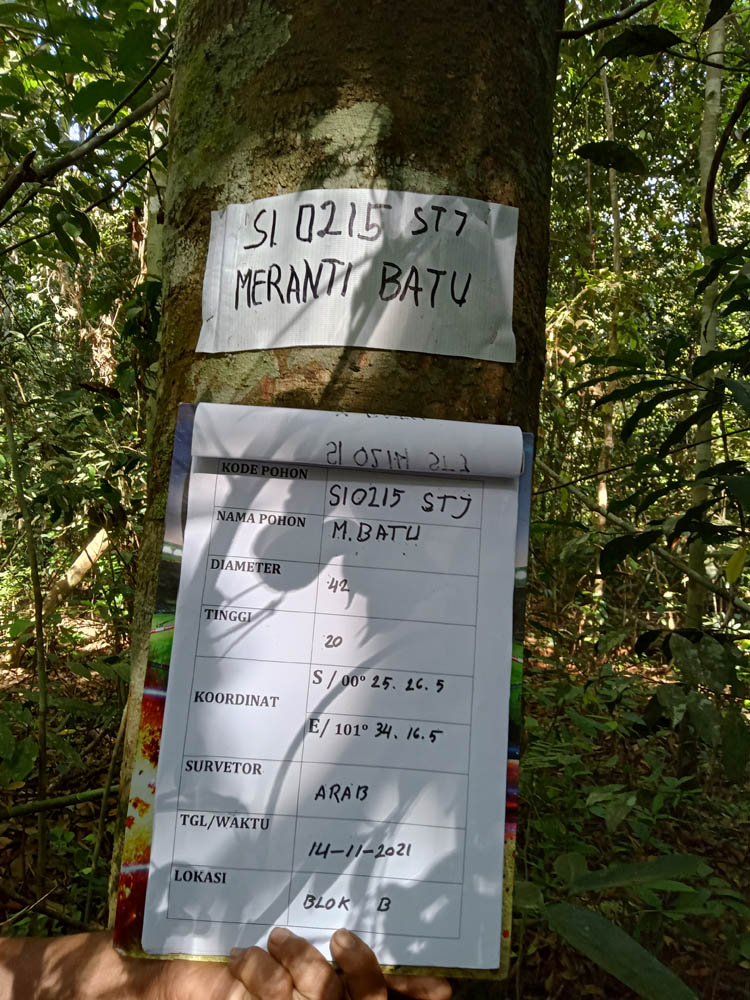 SI 0215 STJ
MERANTI BATU
KODE POHON SI0215 STJ
NAMA POHON M.BATU
DIAMETER 42
TINGGI 20
KOORDINAT S / 00° 25. 26. 5
E/ 101° 34. 16. 5
SURVETOR ARAB
TGL/WAKTU 14-11-2021
LOKASI BLOK B